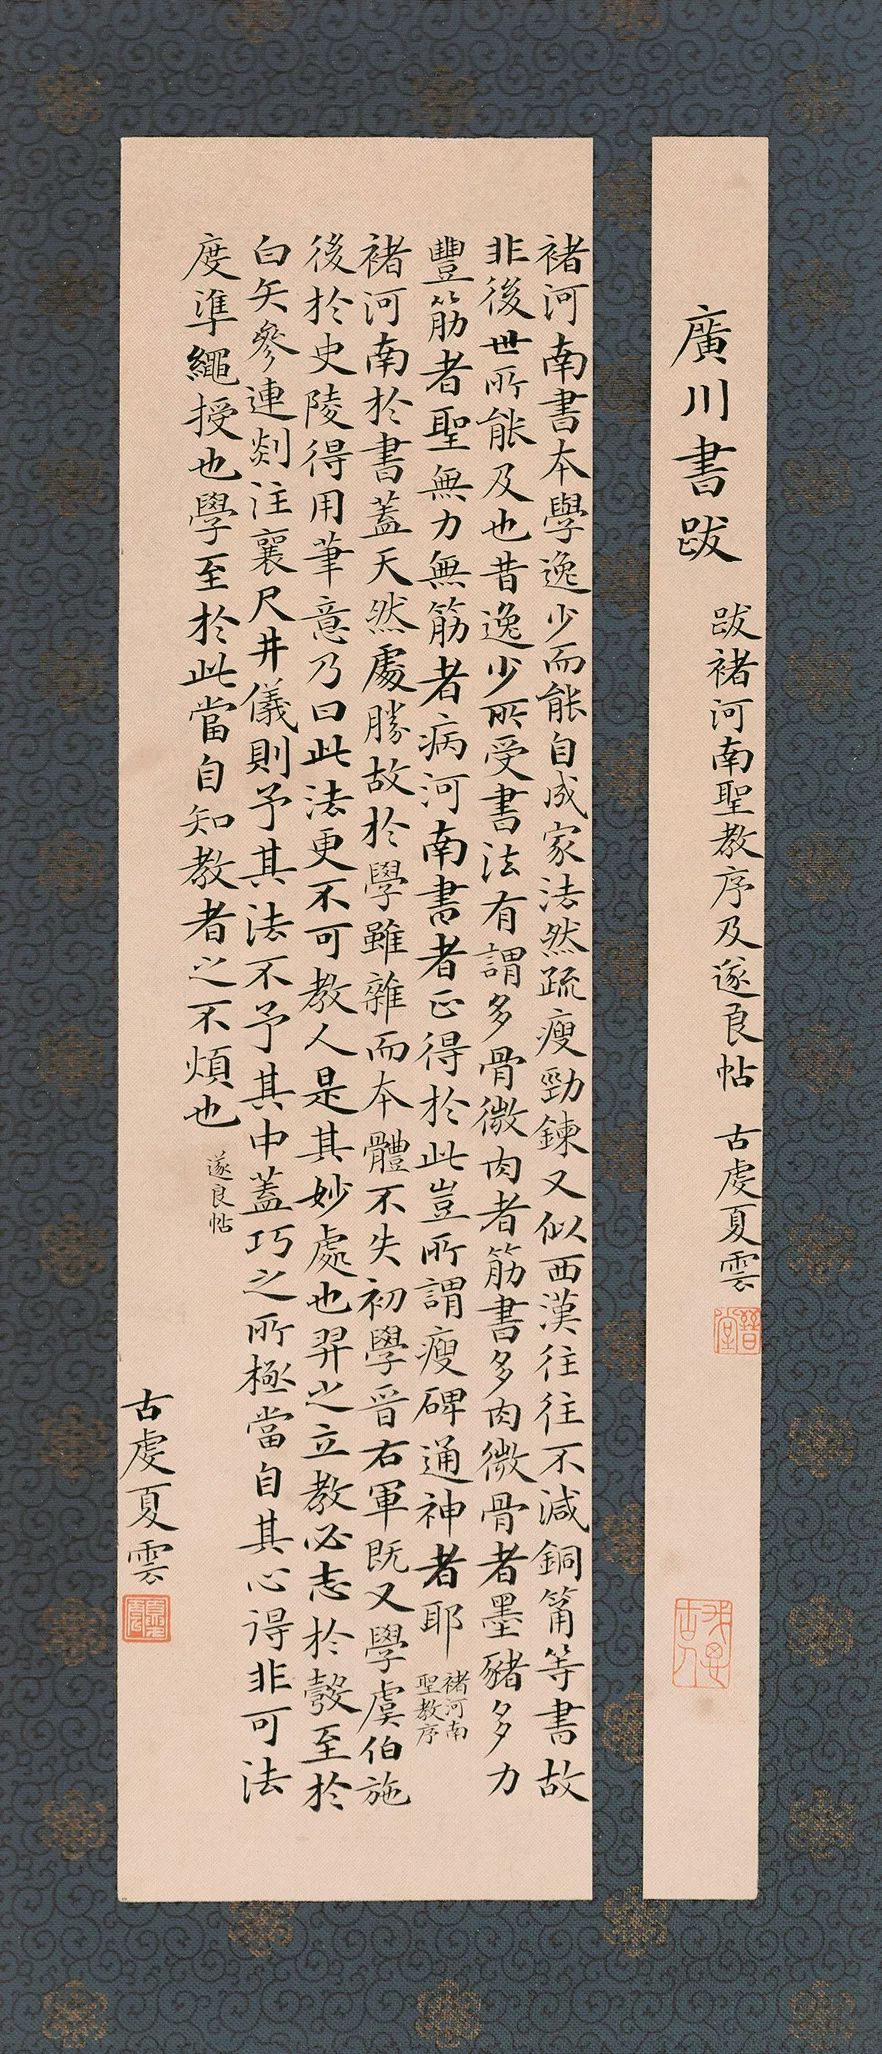 廣川書跋
跋褚河南聖教序及遂良帖 古虔夏雲
褚河南書本學逸少而能自成家法然疏瘦勁鍊又似西漢往往不減銅筩等書故
非後世所能及也昔逸少所受書法有謂多骨微肉者筋書多肉微骨者墨豬多力
豐筋者聖無力無筋者病河南書者正得於此豈所謂瘦碑通神者耶 褚河南聖教序
褚河南於書蓋天然處勝故於學雖雜而本體不失初學晉右軍既又學虞伯施
後於史陵得用筆意乃曰此法更不可教人是其妙處也羿之立教必志於彀至於
白矢參連剡注襄尺井儀則予其法不予其中蓋巧之所極當自其心得非可法
度準繩授也學至於此當自知教者之不煩也 遂良帖
古虔夏雲